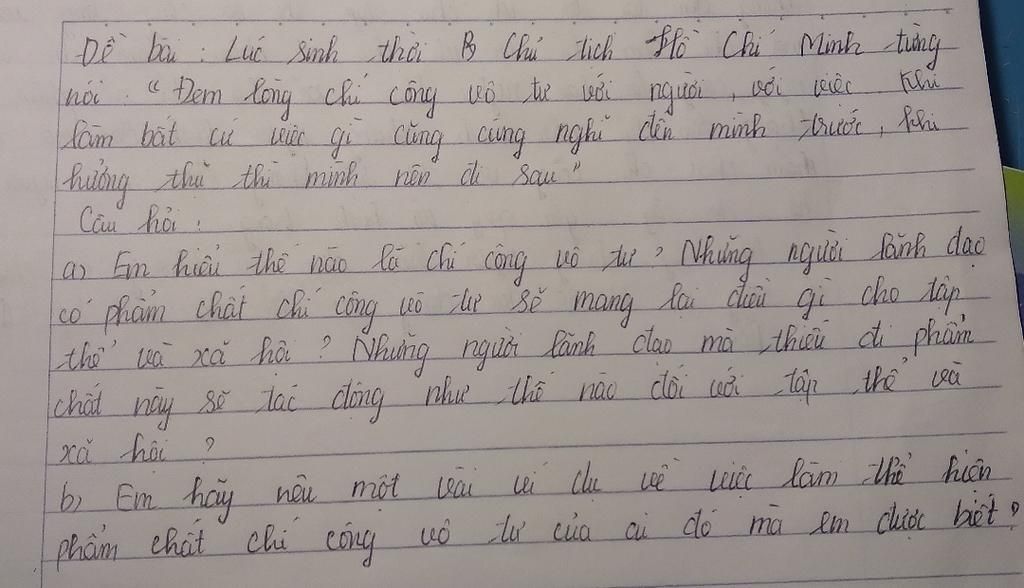 Đề bài : Lúc sinh thời Chủ tịch Hồ Chí Minh từng
nói : " Đem lòng chí công vô tư với người, với việc khi
làm bất cứ việc gì cũng cũng nghĩ đến mình trước, khi
hưởng thụ thì mình nên đi sau"
Câu hỏi :
a) Em hiểu thế nào là chí công vô tư ? Những người lãnh đạo
có phẩm chất chí công vô tư sẽ mang lại điều gì cho tập
thể và xã hội ? Những người lãnh đạo mà thiếu đi phẩm
chất này sẽ tác động như thế nào đối với tập thể và
xã hội ?
b) Em hãy nêu một vài ví dụ về việc làm thể hiện
phẩm chất chí công vô tư của ai đó mà em được biết?